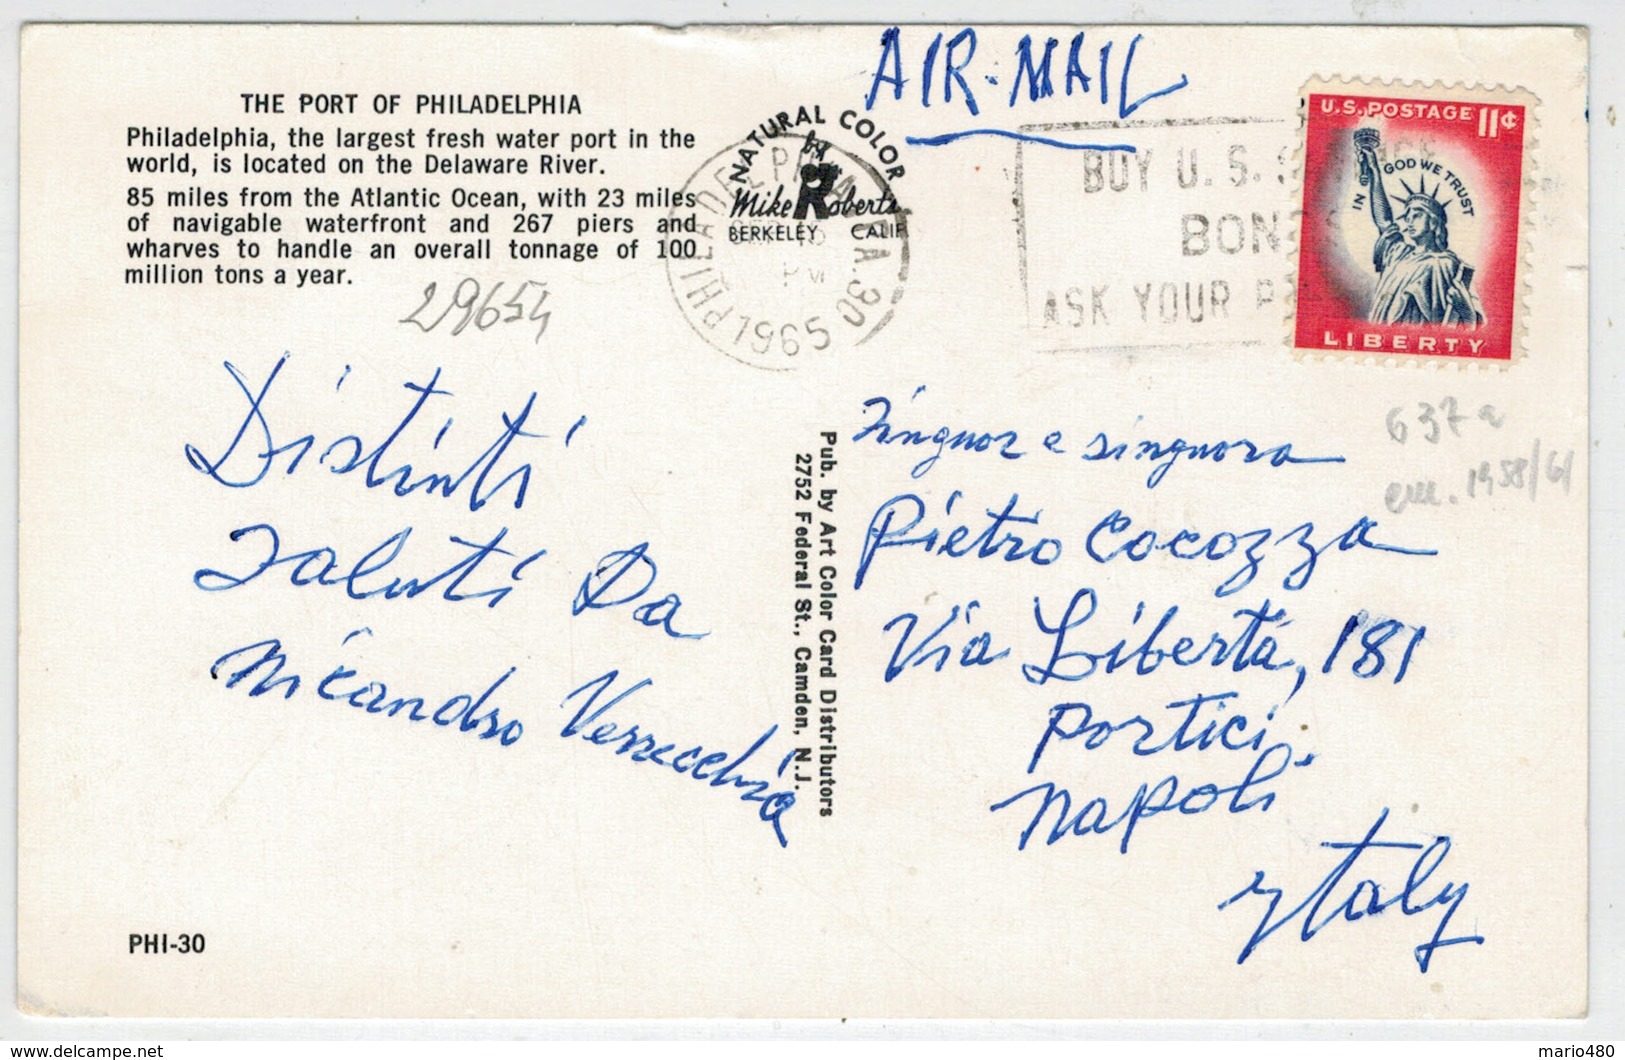 THE PORT OF PHILADELPHIA
Philadelphia, the largest fresh water port in the
world, is located on the Delaware River.
85 miles from the Atlantic Ocean, with 23 miles
of navigable waterfront and 267 piers and
wharves to handle an overall tonnage of 100
million tons a year.
29654
Distinti
Saluti Da
Nicandro Verrecchia
PHI-30
NATURAL COLOR
by
Mike Roberts
BERKELEY CALIF
PHILADELPHIA, PA. 30
PM
1965
AIR-MAIL
BUY U.S. S
BON
ASK YOUR
U.S. POSTAGE 11¢
IN GOD WE TRUST
LIBERTY
637a
em. 1958/61
Pub. by Art Color Card Distributors
2752 Federal St., Camden, N.J.
Singnor e singnora
Pietro Cocozza
Via Libertà, 181
Portici
Napoli
Italy
mario480